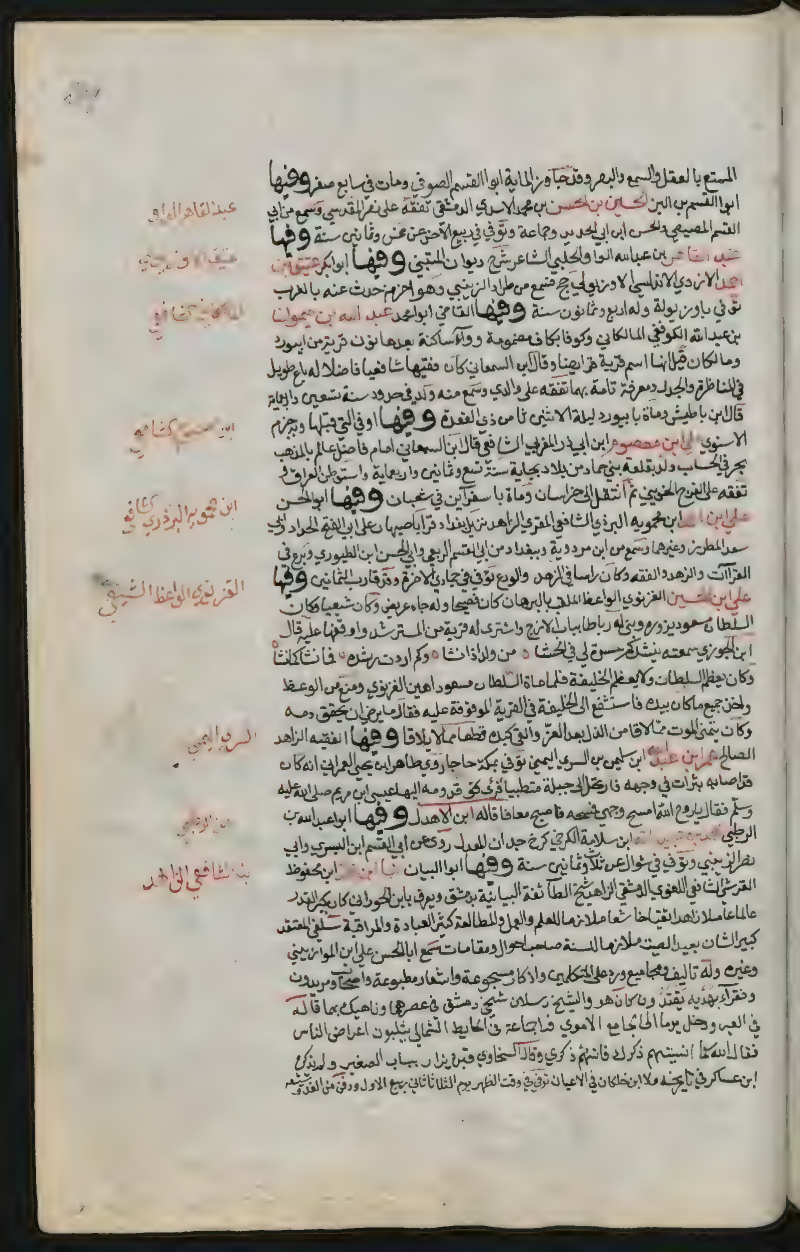 الممتع بالعقل والسمع والبصر وقد جاوز الماية ابوا القسم الصوفي ومات في سابع صفر وفيها
ابوا القسم بن البن الحسين بن الحسن بن محمد الاسدي الدمشقي تفقه على نصر المقدسي وسمع من ابي
عبد القاهر الواوا
القسم المصيصي والحسن ابن ابي الحديد وجماعة وتوفي في ربيع الاخر عن خمس وثمانين سنة وفيها
عبد القاهر بن عبدالله الواوا الحلبي الشاعر شرح ديوان المتنبي وفيها ابوا بكر عتيق ابن
احمد الازدي الاندلسي الاوريولي حج فسمع من طراد الزينبي وهو اخر من حدث عنه بالمغرب
توفي باوريولة وله اربع وثمانون سنة وفيها القاضي ابوا محمد عبد الله بن ميمون
بن عبدالله الكوفني المالكاني وكوفا بكاف مضمومة وواو ساكنة بعدها نون قرية من ابيورد
ومالكان قيل انها اسم قرية قرايضا وقال ابن السمعاني كان فقيها شافعيا فاضلا له باع طويل
في المناظرة والجدل ومعرفة تامة بهما تفقه على والدي وسمع منه ولد في حدود سنة تسعين واربعماية
قال ابن باطيش ومات بابيورد ليلة الاثنين ثامن ذي القعدة وفيها او في التي قبلها وبه جزم
الاسنوي علي ابن معصوم ابن ابي ذر المغربي الشافعي قال ابن السمعاني امام فاضل عالم بالمذهب
ابن معصوم الشافعي
بحر في الحساب ولد بقلعة بني حماد من بلاد بجاية سنة تسع وثمانين واربعماية واستوطن العراق و
تفقه على الفرج الخويني ثم انتقل الى خراسان ومات باسفراين في شعبان وفيها ابوا الحسن
علي ابن احمد ابن محمويه اليزدي الشافعي المقري الزاهد نزيل بغداد قرا باصبهان على ابي الفتح الحداد وابي
ابن محمويه اليزدي الشافعي
سعد المطرز وغيرهما وسمع من ابن مردوية وببغداد من ابي القسم الربعي وابي الحسن ابن الطيوري وبرع في
القراآت والزهد والفقه وكان راسا في الزهد والورع توفي في جمادي الاخرة وقد قارب الثمانين وفيها
علي ابن الحسين الغزنوي الواعظ الملقب بالبرهان كان فصيحا وله جاه عريض وكان شيعيا وكان
الغزنوي الواعظ الشيعي
السلطان مسعود يزوره وبني له رباطا بباب الازج واشتري له قرية من المسترشد واوقفها عليه قال
ابن الجوزي سمعته ينشد كم حسرة لي في الحشا من ولد اذا نشا وكم اردت رشده فما نشا كما نشا
وكان يعظم السلطان ولا يعظم الخليفة فلما مات السلطان مسعود اهين الغزنوي ومنع من الوعظ
واخذ جميع ما كان بيده فاستشفع الى الخليفة في القرية الموقوفة عليه فقال ما يرضى ان يحقن دمه
وكان يتمنى الموت مما لاقا من الذل بعد العز والقى كبده قطعا مما لا يلاقا وفيها الفقيه الزاهد
السري اليمني
الصالح عمر ابن عبدالله ابن سليمن بن السري اليمني توفي بمكة حاجا روي طاهر ابن يحيى العمراني انه كان
قد اصابه بثرات في وجهه فارتحل الى جبلة متطبيا فراى قدومه اليها عيسى ابن مريم صلى الله عليه
وسلم فقال يا روح الله امسح وجهي فمسحه فاصبح معافا قاله ابن الاهدل وفيها ابوا عبدالله
الرطبي محمد بن عبيد الله ابن سلامة الكرخي كرخ جدان المعدل روي عن ابي القسم ابن البسري وابي
نصر الزينبي وتوفي في شوال عن ثلاث وثمانين سنة وفيها ابوا البيان نبا ابن محمد ابن محفوظ
القرشي الشافعي اللغوي الدمشقي الزاهد شيخ الطائفة البيانية بدمشق ويعرف بابن الحوراني كان كبير القدر
عالما عاملا زاهدا تقيا خاشعا ملازما للعلم والعمل والمطالعة كثير العبادة والمراقبة سلفي المعتقد
كبير الشان بعيد الصيت ملازما للسنة صاحب احوال ومقامات سمع ابا الحسن علي ابن الموازيني
وغيره وله تاليف ومجاميع ورد على المتكلمين واذكار مسجوعة واشعار مطبوعة واصحاب ومريدون
وفقراء بهديه يقتدون كان هو والشيخ رسلان شيخي دمشق في عصرهما وناهيك بهما قاله
في العبر ودخل يوما الى الجامع الاموي فراى جماعة في الحايط الشمالي يثلبون اعراض الناس
فقال اللهم كما انسيتهم ذكرك فانسهم ذكري وقال السخاوي قبره يزار بباب الصغير ولم يذكره
ابن عساكر في تاريخه ولا ابن خلكان في الاعيان توفي وقت الظهر يوم الثلاثا ثاني ربيع الاول ودفن من الغد